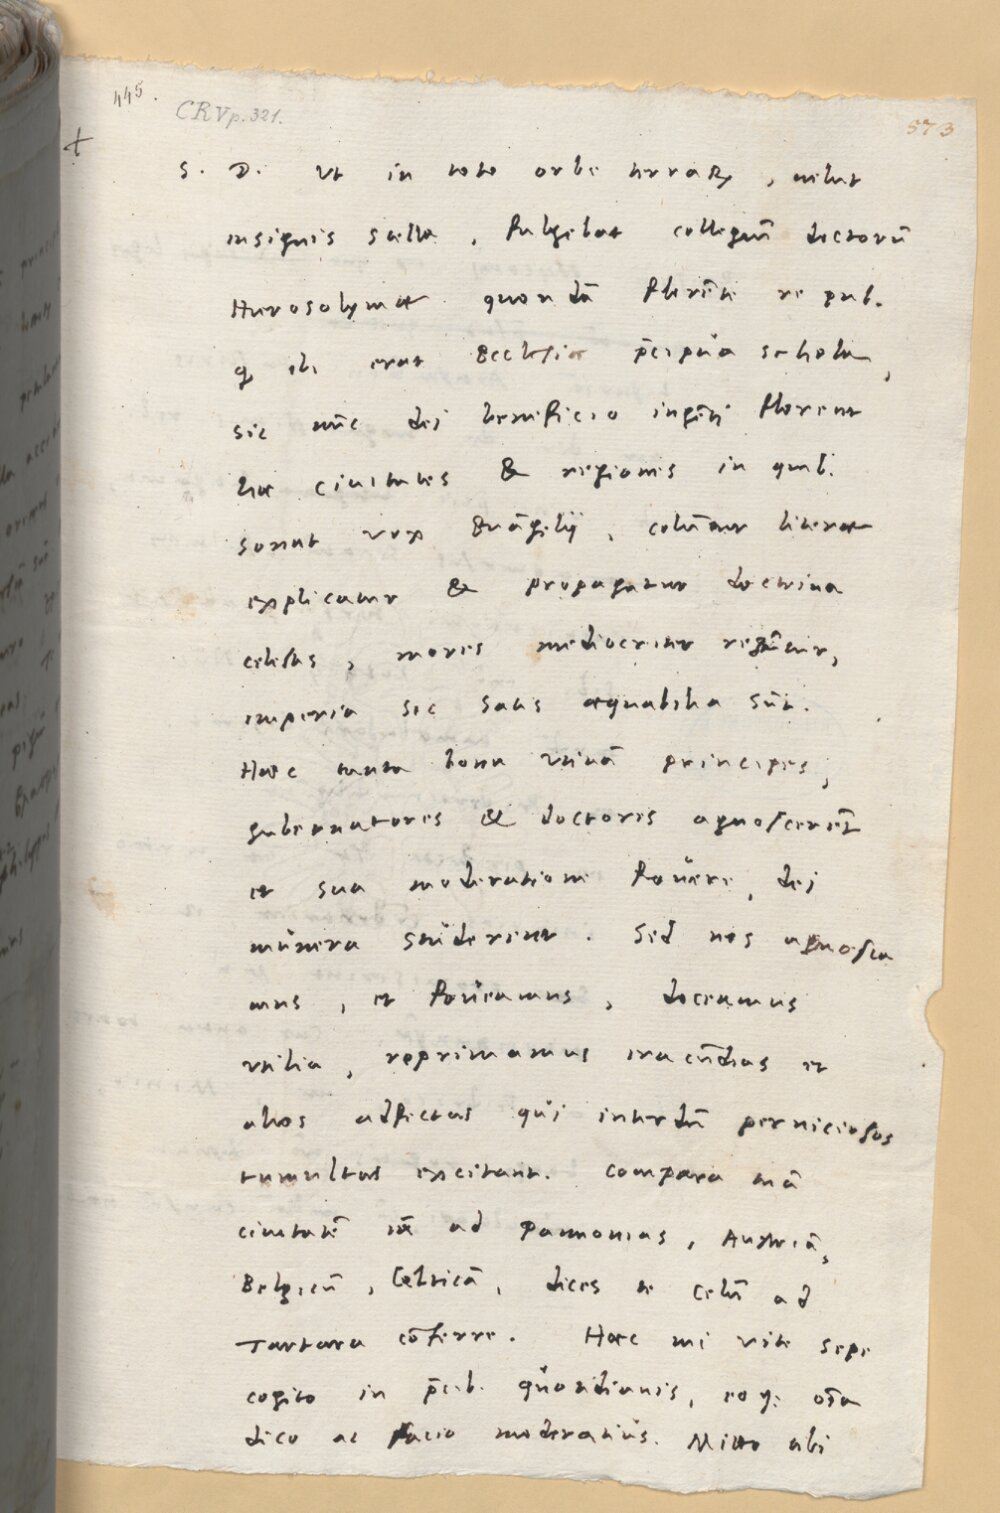 445.
CR V p. 321.
573
S. D. Ut in toto orbe terraꝝ, velut
insignis stella, fulgebat collegiũ doctorũ
Hierosolymae quondã florẽte re pub.
q̃ ibi erat Ecclesia p̃cipua schola,
sic nũc dei beneficio ingẽti florent
hae ciuitates & regiones in quib.
sonat vox Euãgelij, colũtur literae
explicatur & propagatur doctrina
celestis, mores mediocriter regũtur,
imperia sic satis aequabilia sũt.
Haec tanta bona vtinã principes,
gubernatores & doctores agnoscerẽt
et sua moderatione fovere dei
munera studerent. Sed nos agnosca
mus, et foueamus, doceamus
vtilia, reprimamus iracũdias et
alios adfectus qui interdũ perniciosos
tumultus excitant. Compara tuã
ciuitatẽ ad Pannonias, Austriã,
Belgicũ, Celticã, dices te Celũ ad
Tartara cõferre. Haec mi Vite sepe
cogito in p̃cib. quotidianis, eo q; oĩa
dico ac facio moderatius. Mitto tibi